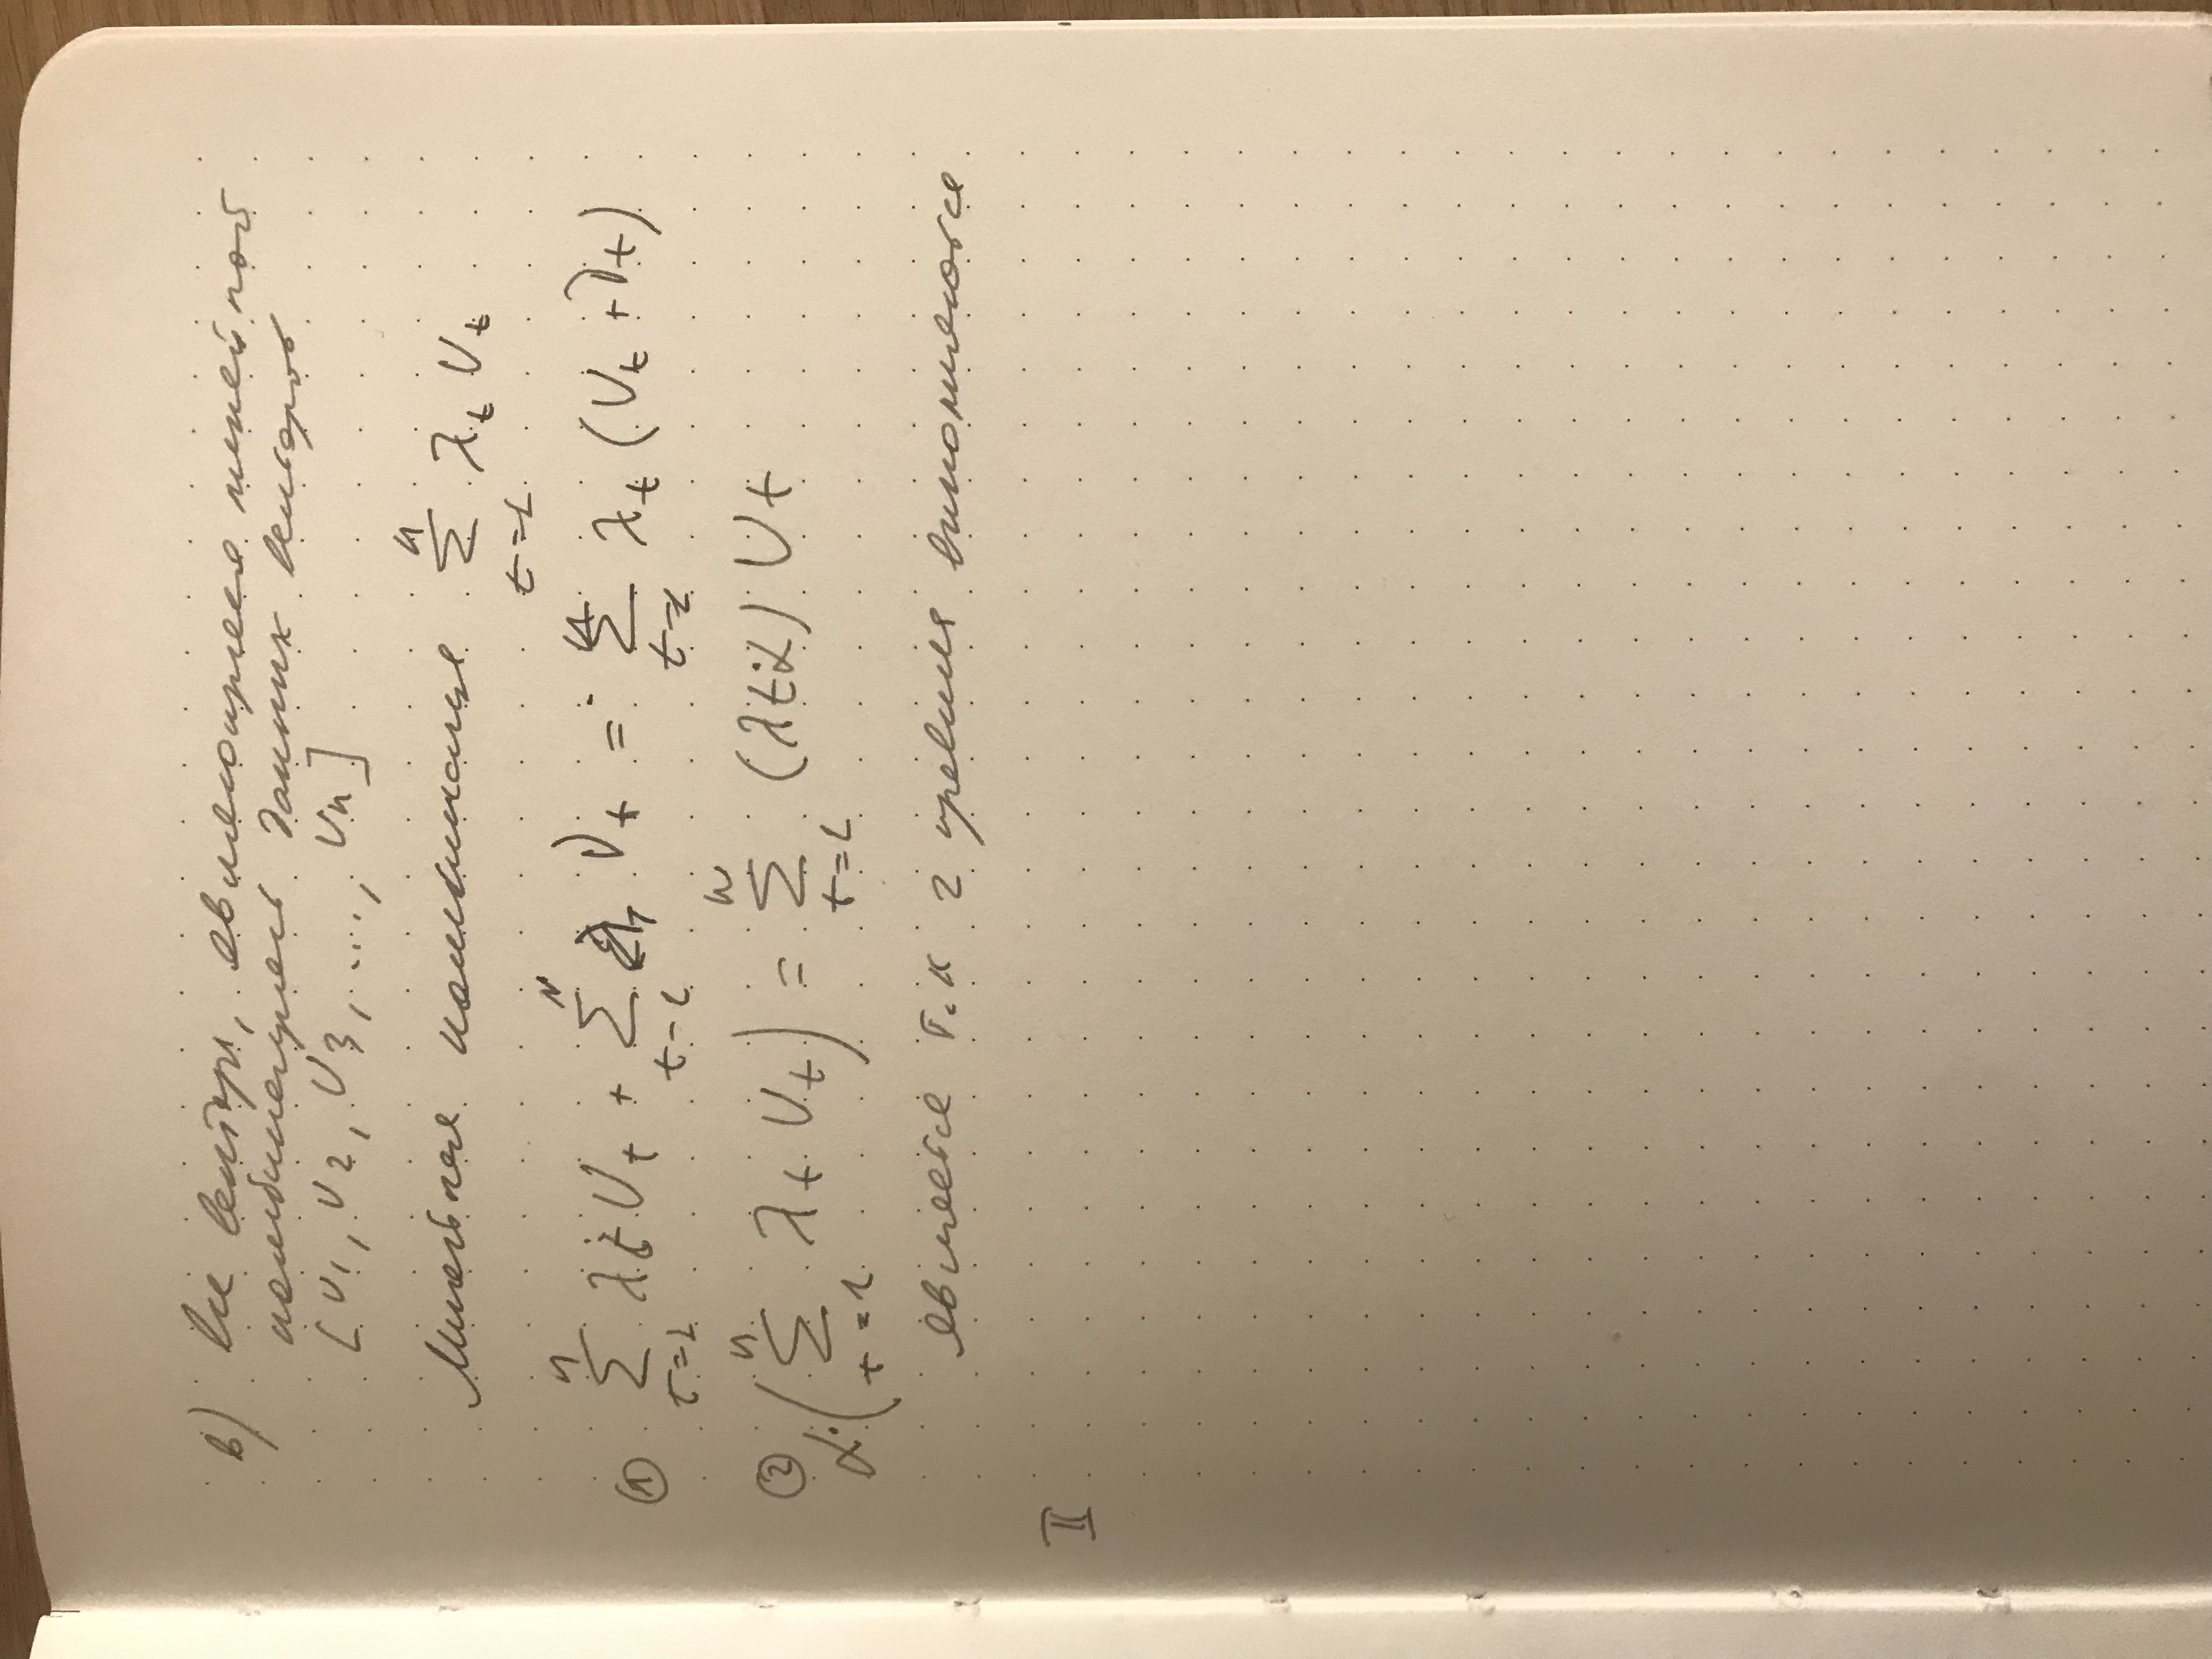 в) Все вектора, являющиеся линейной
комбинацией данных векторов
[v1, v2, v3, ..., vn]
Линейная комбинация n Σ t=1 λt Vt
① n Σ t=1 λt Vt + n Σ t=1 λt Vt = n Σ t=1 λt (Vt + Vt)
② α·(n Σ t=1 λt Vt) = n Σ t=1 (λt·α) Vt
является т.к 2 правила выполняются
II